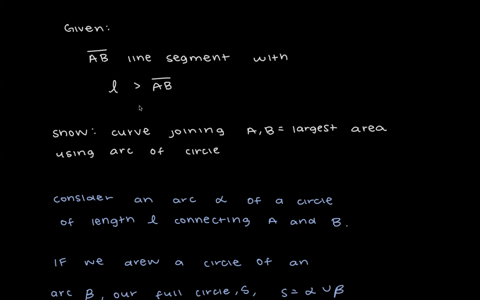 Given:
AB line segment with
l > AB
show: curve joining A, B = largest area
using arc of circle
consider an arc α of a circle
of length l connecting A and B.
IF we drew a circle of an
arc β, our full circle, S, S = α ∪ β